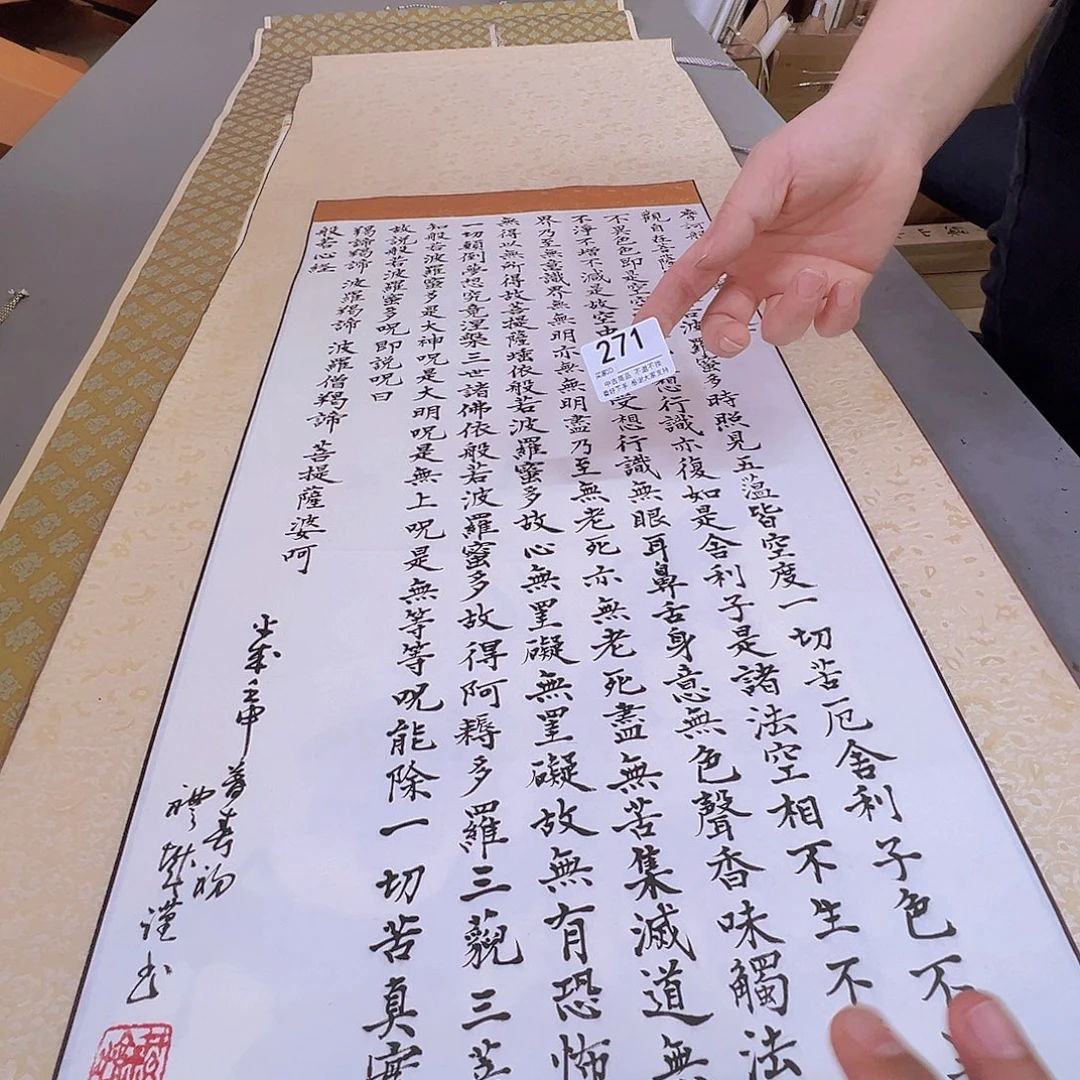 觀自在菩薩 若波羅蜜多時照見五蘊皆空度一切苦厄舍利子色不
不異色色即是空空 想行識亦復如是舍利子是諸法空相不生不
不淨不增不減是故空中 受想行識無眼耳鼻舌身意無色聲香味觸法
界乃至無意識界無無明亦無無明盡乃至無老死亦無老死盡無苦集滅道無
無得以無所得故菩提薩埵依般若波羅蜜多故心無罣礙無罣礙故無有恐怖
一切顛倒夢想究竟涅槃三世諸佛依般若波羅蜜多故得阿耨多羅三藐三菩
知般若波羅蜜多是大神呪是大明呪是無上呪是無等等呪能除一切苦真實
故説般若波羅蜜多呪即説呪曰
羯諦羯諦 波羅羯諦 波羅僧羯諦 菩提薩婆呵
般若心经
歲壬申
謹书
271
买家ID
中古商品 不退不换
看好下手 感谢大家支持